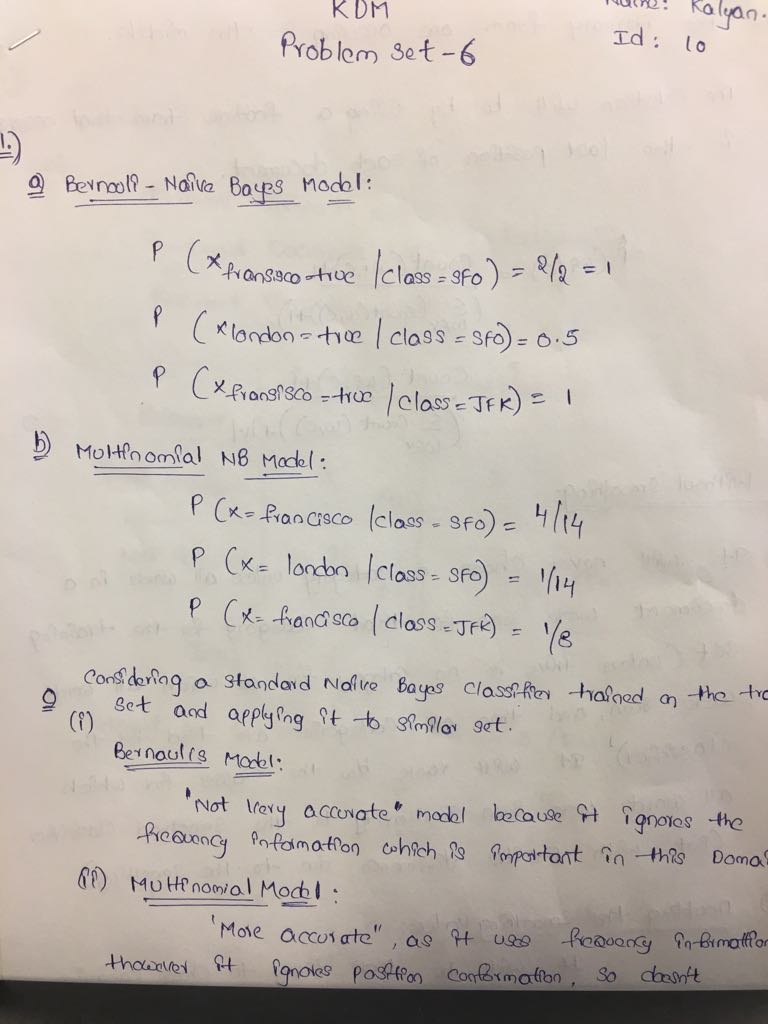 KDM
Name: Kalyan.
Problem set-6
Id: 10
1.)
a) Bernooli - Naive Bayes Model:
P (x fransisco=true / class = SFO) = 2/2 = 1
P (x london = true / class = SFO) = 0.5
P (x fransisco = true / class = JFK) = 1
b) Multinomial NB Model:
P (x = francisco / class = SFO) = 4/14
P (x = london / class = SFO) = 1/14
P (x = francisco / class = JFK) = 1/8
c) Considering a standard Naive Bayes classifier trained on the tra
(i) set and applying it to similar set.
Bernaulis Model:
"Not very accurate" model because it ignores the
frequency information which is important in this Domai
(ii) Multinomial Model:
"More accurate", as it uses frequency information
thowever it ignores position conformation, so doesn't